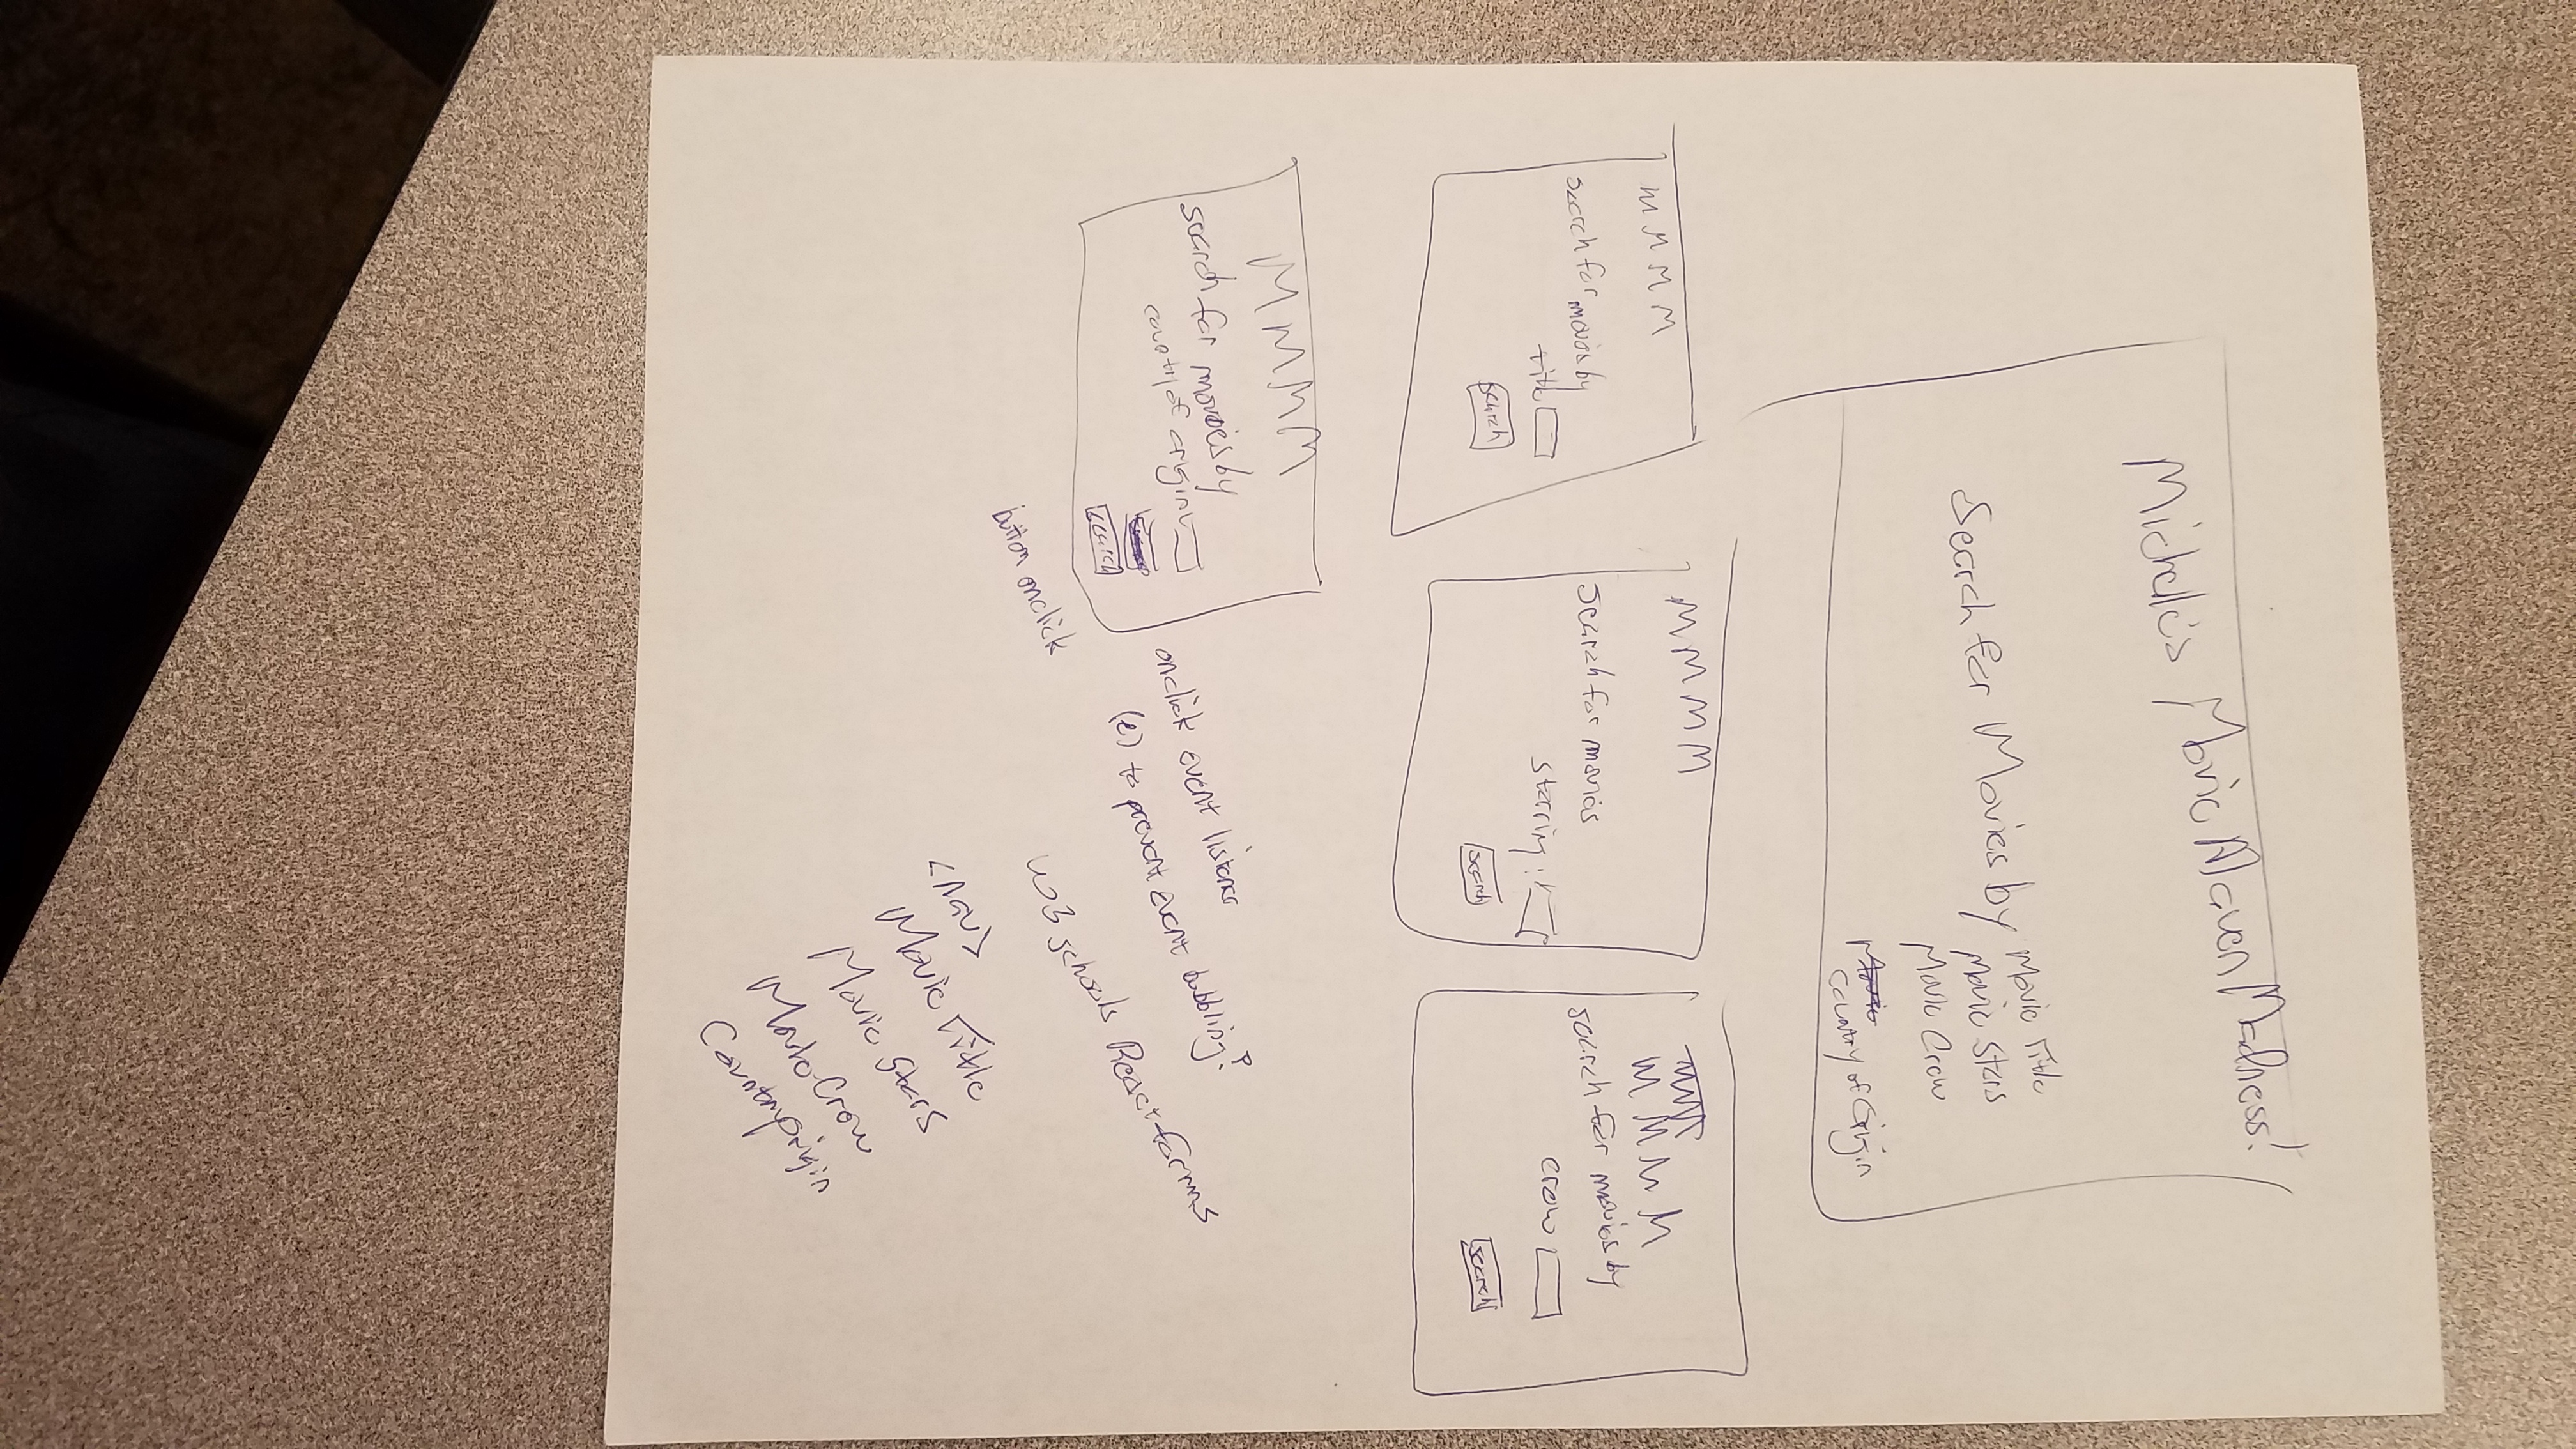 Michelle's Movie Maven Madness!
Search for Movies by Movie Title
Movie Stars
Movie Crew
Country of Origin
M M M M
Search for movies by
title
search
M M M M
Search for movies
starring:
search
M M M M
search for movies by
crew
search
M M M M
search for movies by
country of origin
search
button onclick
onclick event listener
(e) to prevent event bubbling?
W3 schools React forms
<Nav>
Movie Title
Movie Stars
Movie Crew
Country origin